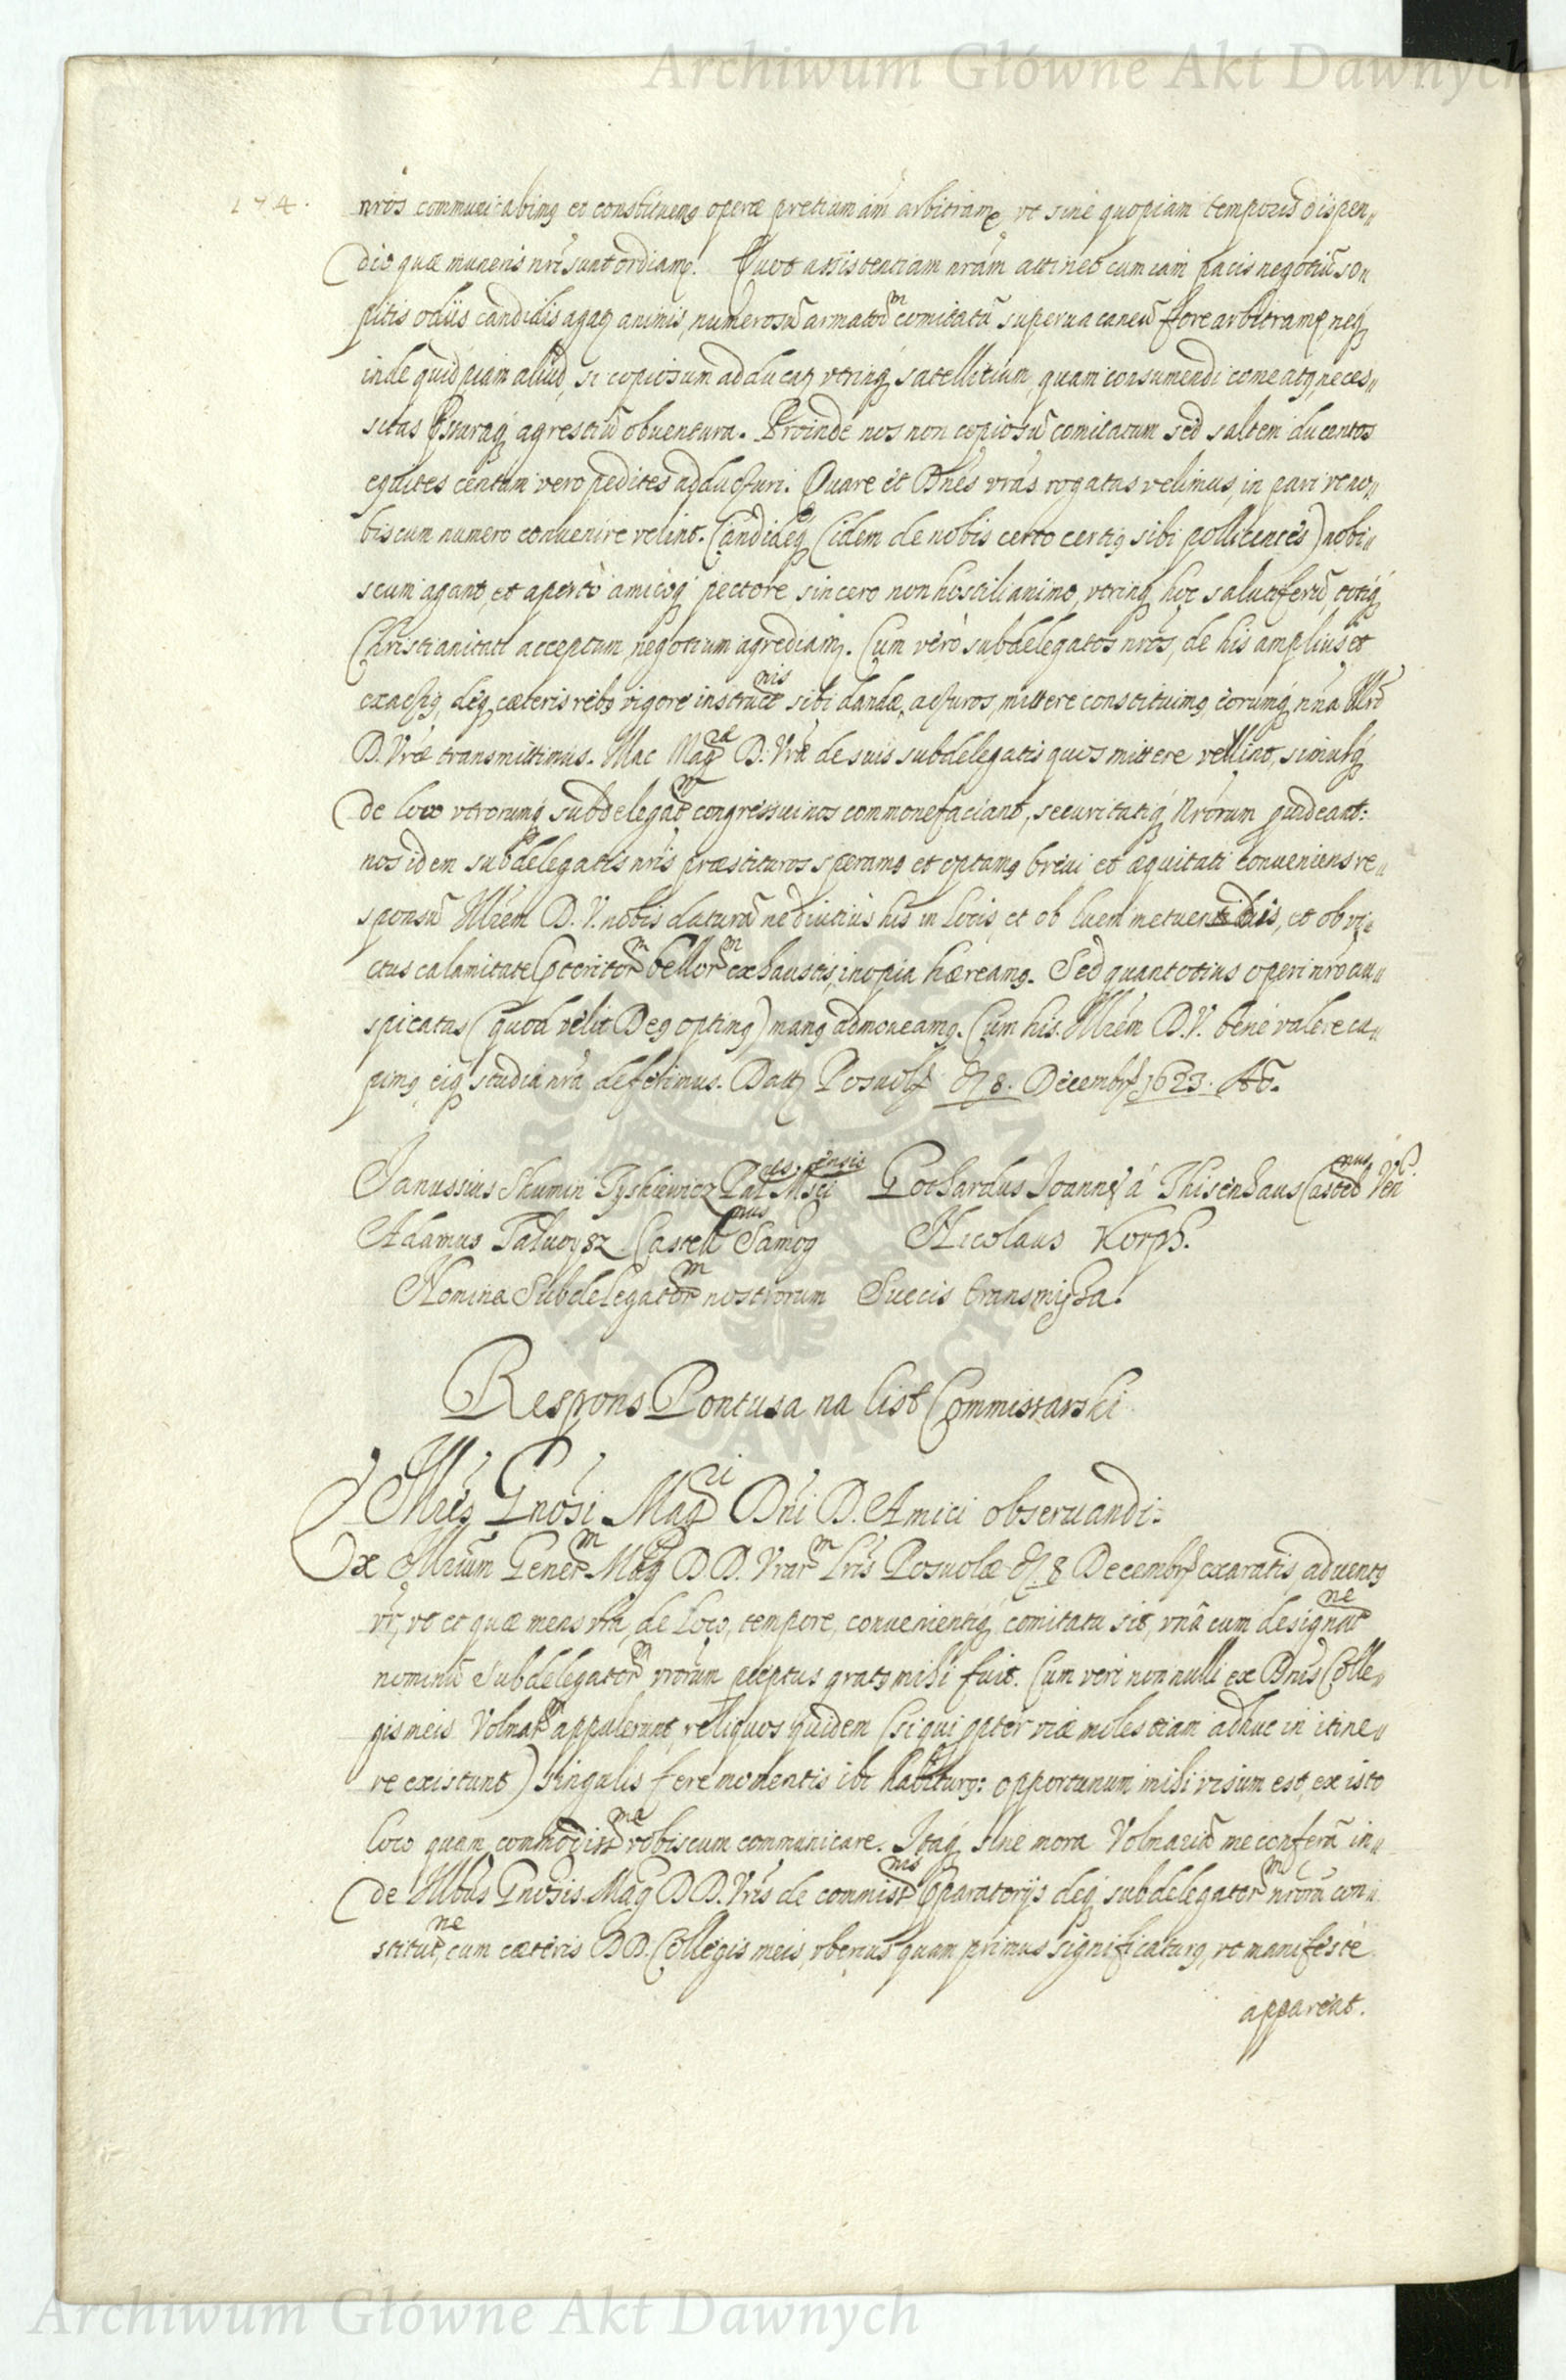 Archiwum Główne Akt Dawnych
174.
nros communicabimus et constituemus operæ pretium iam arbitramur, vt sine quopiam temporis dispen„
dio quæ muneris nri sunt ordiamur. Quot assistentiam nram attinet cum iam pacis negotiũ so„
pitis odiis candidis agatur animis, numerosũ armator͠m comitatũ superuacaneũ fore arbitramur, neq;
inde quidpiam aliud, si copiosum adducatur vtrinq; satellitium, quam consumendi comeatus, neces„
sitas agrestiũ obuentura. Proinde nos non copiosũ comitatum sed saltem ducentos
equites centum vero pedites adducturi. Quare et Dnes vras rogatas velimus, in pari vt no„
biscum numero conuenire velint. Candideq; (idem de nobis certo certius sibi pollicentes) nobi„
scum agant, et aperto amicoq; pectore, sincero non hostili animo, vtrinq; hoc salutiferũ, totiq;
Christianitati acceptum negotium agrediamur. Cum verò subdelegatos nros, de his amplius et
exactius, deq; cæteris rebus vigore instructnis sibi dandæ, acturos, mittere constituimus, eorumq; nna Illrũ
D. Vræ transmittimus. Hac Magcæ D: Vræ de suis subdelegatis quos mittere vellint, simulq;
de loco vtrorumq; subdelegator͠m congressui nos commonefaciant, securitatiq; Nrorum prouideant:
nos idem subdelegatis nris præstituros speramus et optamus breui et æquitati conueniens re„
sponsũ Illrem D. V. nobis daturũ ne diutius his in locis, et ob luem metuentibus, et ob vi„
ctus calamitate præteritor͠m bellor͠m exhaustis, inopia hæreamus. Sed quantotius operi nro au„
spicatus (quod velit Deus optimus) manus admoueamus. Cum his Illrem D. V. bene valere cu„
pimus eius studia nra deferimus. Datt Posuol 8. Decembr 1623. Ao.
Janussius Skumin Tyskiewicz Palaes Msciensis Gothardus Joannes á Thisenhaus Castelnus Ven
Adamus Taluoysz Castellnus Samog Nicolaus Korph.
Nomina Subdelegator͠m nostrorum Suecis transmissa.
Respons Pontusa na list Commissarski
Illres Gnosi Magci Dni D. Amici obseruandi.
Ex Illrium Gener͠m Magcæ D D. Vrar͠m lris Posuolæ 8 Decembr exaratis, aduentus
vr, vt et quæ mens vra, de loco, tempore, conuenientiq; comitatu sit, vnâ cum designatne
nominũ Subdelegator͠m vrorum perceptus gratus mihi fuit. Cum veri nonnulli ex Dnis Colle„
gis meis Volmar͠m appulerunt, reliquos quidem (si qui propter viæ molestiam adhuc in itine„
re existunt) singulis fere momentis ibi habiturus: opportunum mihi visum est, ex isto
loco quam commodissme vobiscum communicare. Itaq; sine mora Volmariã me conferã in„
de Illbus Gnosis Mag D D. Vris de commissnis præparatorijs deq; subdelegator͠m nrorũ con„
stitutne, cum cæteris DD. Collegis meis, vberius quam primus significaturus, vt manifeste
apparent.
Archiwum Główne Akt Dawnych